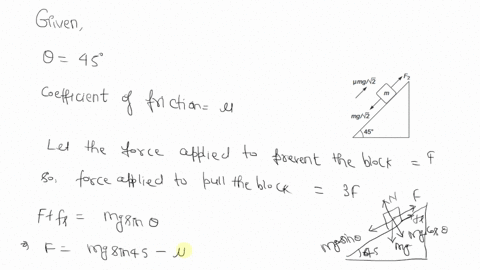 Given,
θ = 45°
Coefficient of friction = μ
μmg/√2
F₂
m
mg/√2
45°
Let the force applied to prevent the block = F
so, force applied to pull the block = 3F
F+fs = mgsinθ
⇒ F = mgsin45 - μ
N
F
fs
mgsinθ
mg
mgcosθ
45